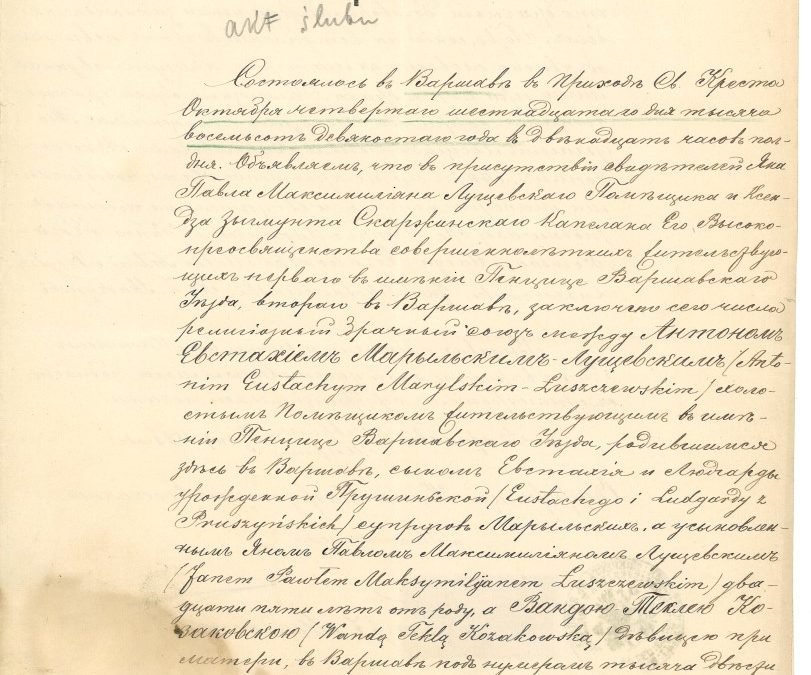 akt ślubu
Состоялось въ Варшавѣ въ приходѣ Св. Креста
Октября четвертаго шестнадцатаго дня тысяча
восемьсотъ девяностаго года въ двѣнадцать часовъ пол-
дня. Объявляемъ, что въ присутствіи свидѣтелей Яна
Павла Максимиліана Лущевскаго Помѣщика и Ксен-
дза Зыгмунта Скаржинскаго Капелана Его Высоко-
преосвященства совершеннолѣтнихъ жительствую-
щихъ перваго въ имѣніи Пенцице Варшавскаго
Уѣзда, втораго въ Варшавѣ, заключенъ сего числа
религіозный брачный союзъ между Антономъ
Евстахіемъ Марыльскимъ-Лущевскимъ (Anto-
nim Eustachym Marylskim-Łuszczewskim) холо-
стымъ Помѣщикомъ жительствующимъ въ имѣ-
ніи Пенцице Варшавскаго Уѣзда, родившимся
здѣсь въ Варшавѣ, сыномъ Евстахія и Людгарды
урожденной Прушиньской (Eustachego i Ludgardy z
Pruszyńskich) супруговъ Марыльскихъ, а усыновлен-
нымъ Яномъ Павломъ Максимиліаномъ Лущевскимъ
(Janem Pawłem Maksymilÿanem Łuszczewskim) два-
дцати пяти лѣтъ отъ роду, а Вандою Теклею Ко-
заковскою (Wandą Teklą Kozakowską) дѣвицею при
матери, въ Варшавѣ подъ нумеромъ тысяча двѣсти